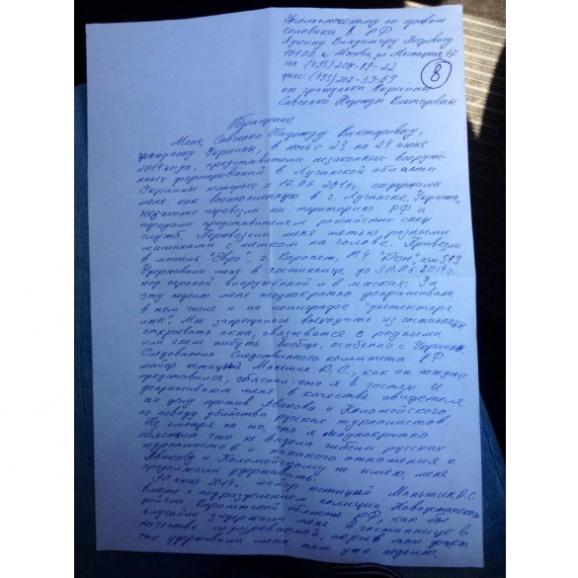 Уполномоченному по правам
человека в РФ
Лукину Владимиру Петровичу
101000 г. Москва ул. Мясницкая 47
тел. (495) 207-19-22
факс. (495) 207-39-69
от гражданки Украины
Савченко Надежды Викторовны
8
Обращение
Меня, Савченко Надежду Викторовну,
гражданку Украины, в ночь с 23 на 24 июня
2014 года, представители незаконных вооружё-
нных формирований в Луганской области
Украины которые с 17.06.2014г. содержали
меня как военнопленную в г. Луганске, Украина,
незаконно перевезли на территорию РФ и
передали представителям российских спец
служб. Перевозили меня разными
машинами с мешком на голове. Привезли
в мотель "Евро", г. Воронеж, М4 "Дон" км 509
Удерживали меня в гостиннице до 30.06.2014г.
под охраной вооружённой и в масках. За
эту неделю меня неоднократно допрашивали
в том числе и на полиграфе
Мне запрещалось выходить из гостинницы
открывать окна, связыватся с родными
или кем нибуть вообще, особенно с Украины.
Следователь Следственного комитета РФ
майор юстиций Маньшин Д.С., как он
представился, обяснил что я в гостях и
допрашивают меня в качестве свидетеля
по делу против Авакова и Коломойского
по поводу убийства русских журналистов.
Не смотря на то, что я неоднократно
обяснила что не видела русских
журналистов и никакого отношения к
Авакову и Коломойскому не имею, меня
продолжали удерживать.
30 июня 2014г. майор юстиций Маньшин Д.С.
вместе с подразделением полиции Новоусманского
района Воронежской области РФ, как бы
случайно задержали меня в гостиннице в
качестве подозреваемой, скрыв факт
что удерживали меня там уже неделю.